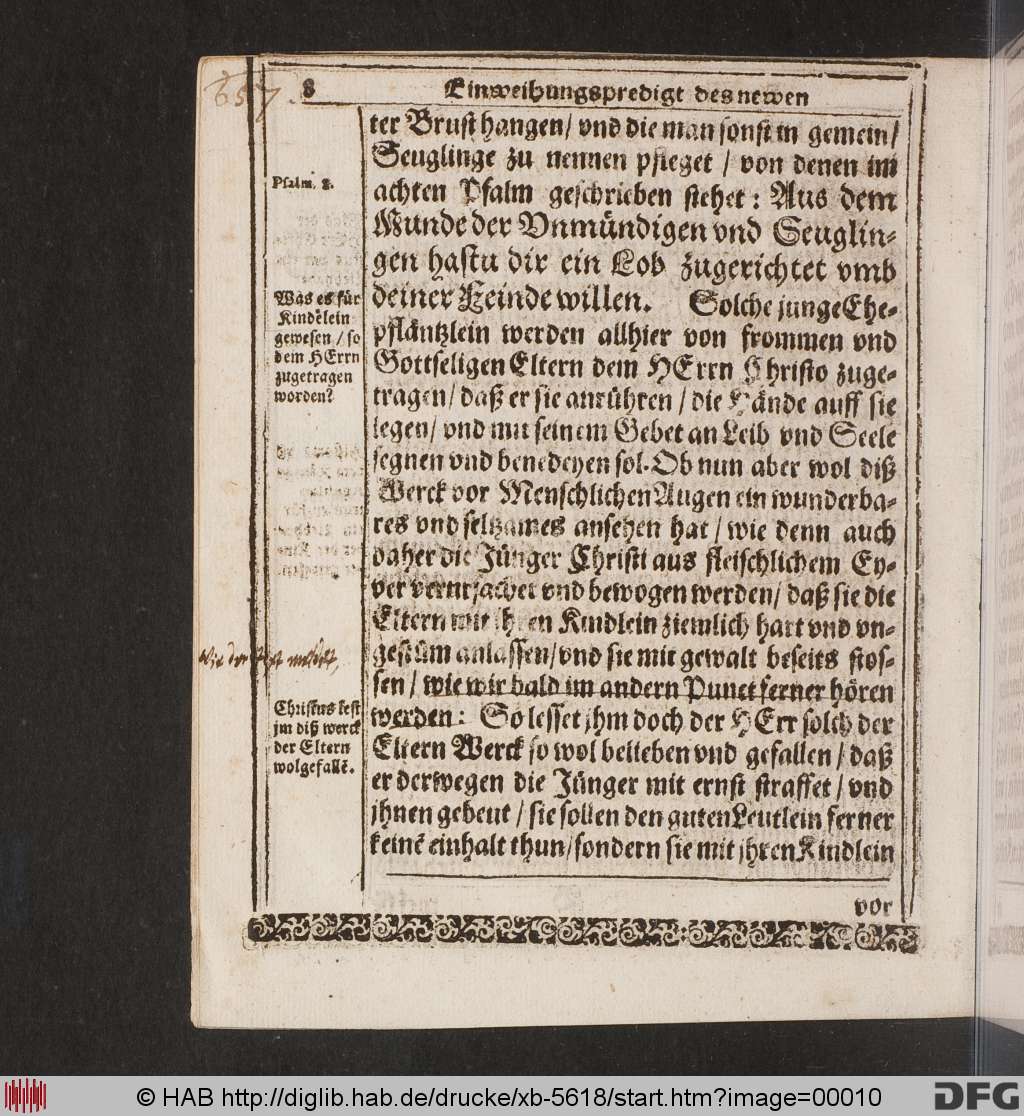 657.
8 Einweihungspredigt des newen
ter Brust hangen/ vnd die man sonst in gemein/
Seuglinge zu nennen pfleget / von denen im
Psalm. 8.
achten Psalm geschrieben stehet: Aus dem
Munde der Vnmündigen vnd Seuglin-
gen hastu dir ein Lob zugerichtet vmb
deiner Feinde willen. Solche junge Ehe-
pfläntzlein werden allhier von frommen vnd
Gottseligen Eltern dem HErrn Christo zuge-
tragen/ daß er sie anrühren / die Hände auff sie
legen/ vnd mit seinem Gebet an Leib vnd Seele
segnen vnd benedeyen sol. Ob nun aber wol diß
Werck vor Menschlichen Augen ein wunderba-
res vnd seltzames ansehen hat / wie denn auch
daher die Jünger Christi aus fleischlichem Ey-
ver verursachet vnd bewogen werden/ daß sie die
Eltern mit ihren Kindlein ziemlich hart vnd vn-
gestüm anlassen/ vnd sie mit gewalt beseits stos-
sen / wie wir bald im andern Punct ferner hören
werden: So lesset jhm doch der HErr solch der
Eltern Werck so wol belieben vnd gefallen / daß
er derwegen die Jünger mit ernst straffet / vnd
jhnen gebeut / sie sollen den guten Leutlein ferner
keinē einhalt thun/ sondern sie mit jhren Kindlein
vor
Was es für
Kindēlein
gewesen / so
dem HErrn
zugetragen
worden?
Christus lest
jm diß werck
der Eltern
wolgefallē.
© HAB http://diglib.hab.de/drucke/xb-5618/start.htm?image=00010
DFG